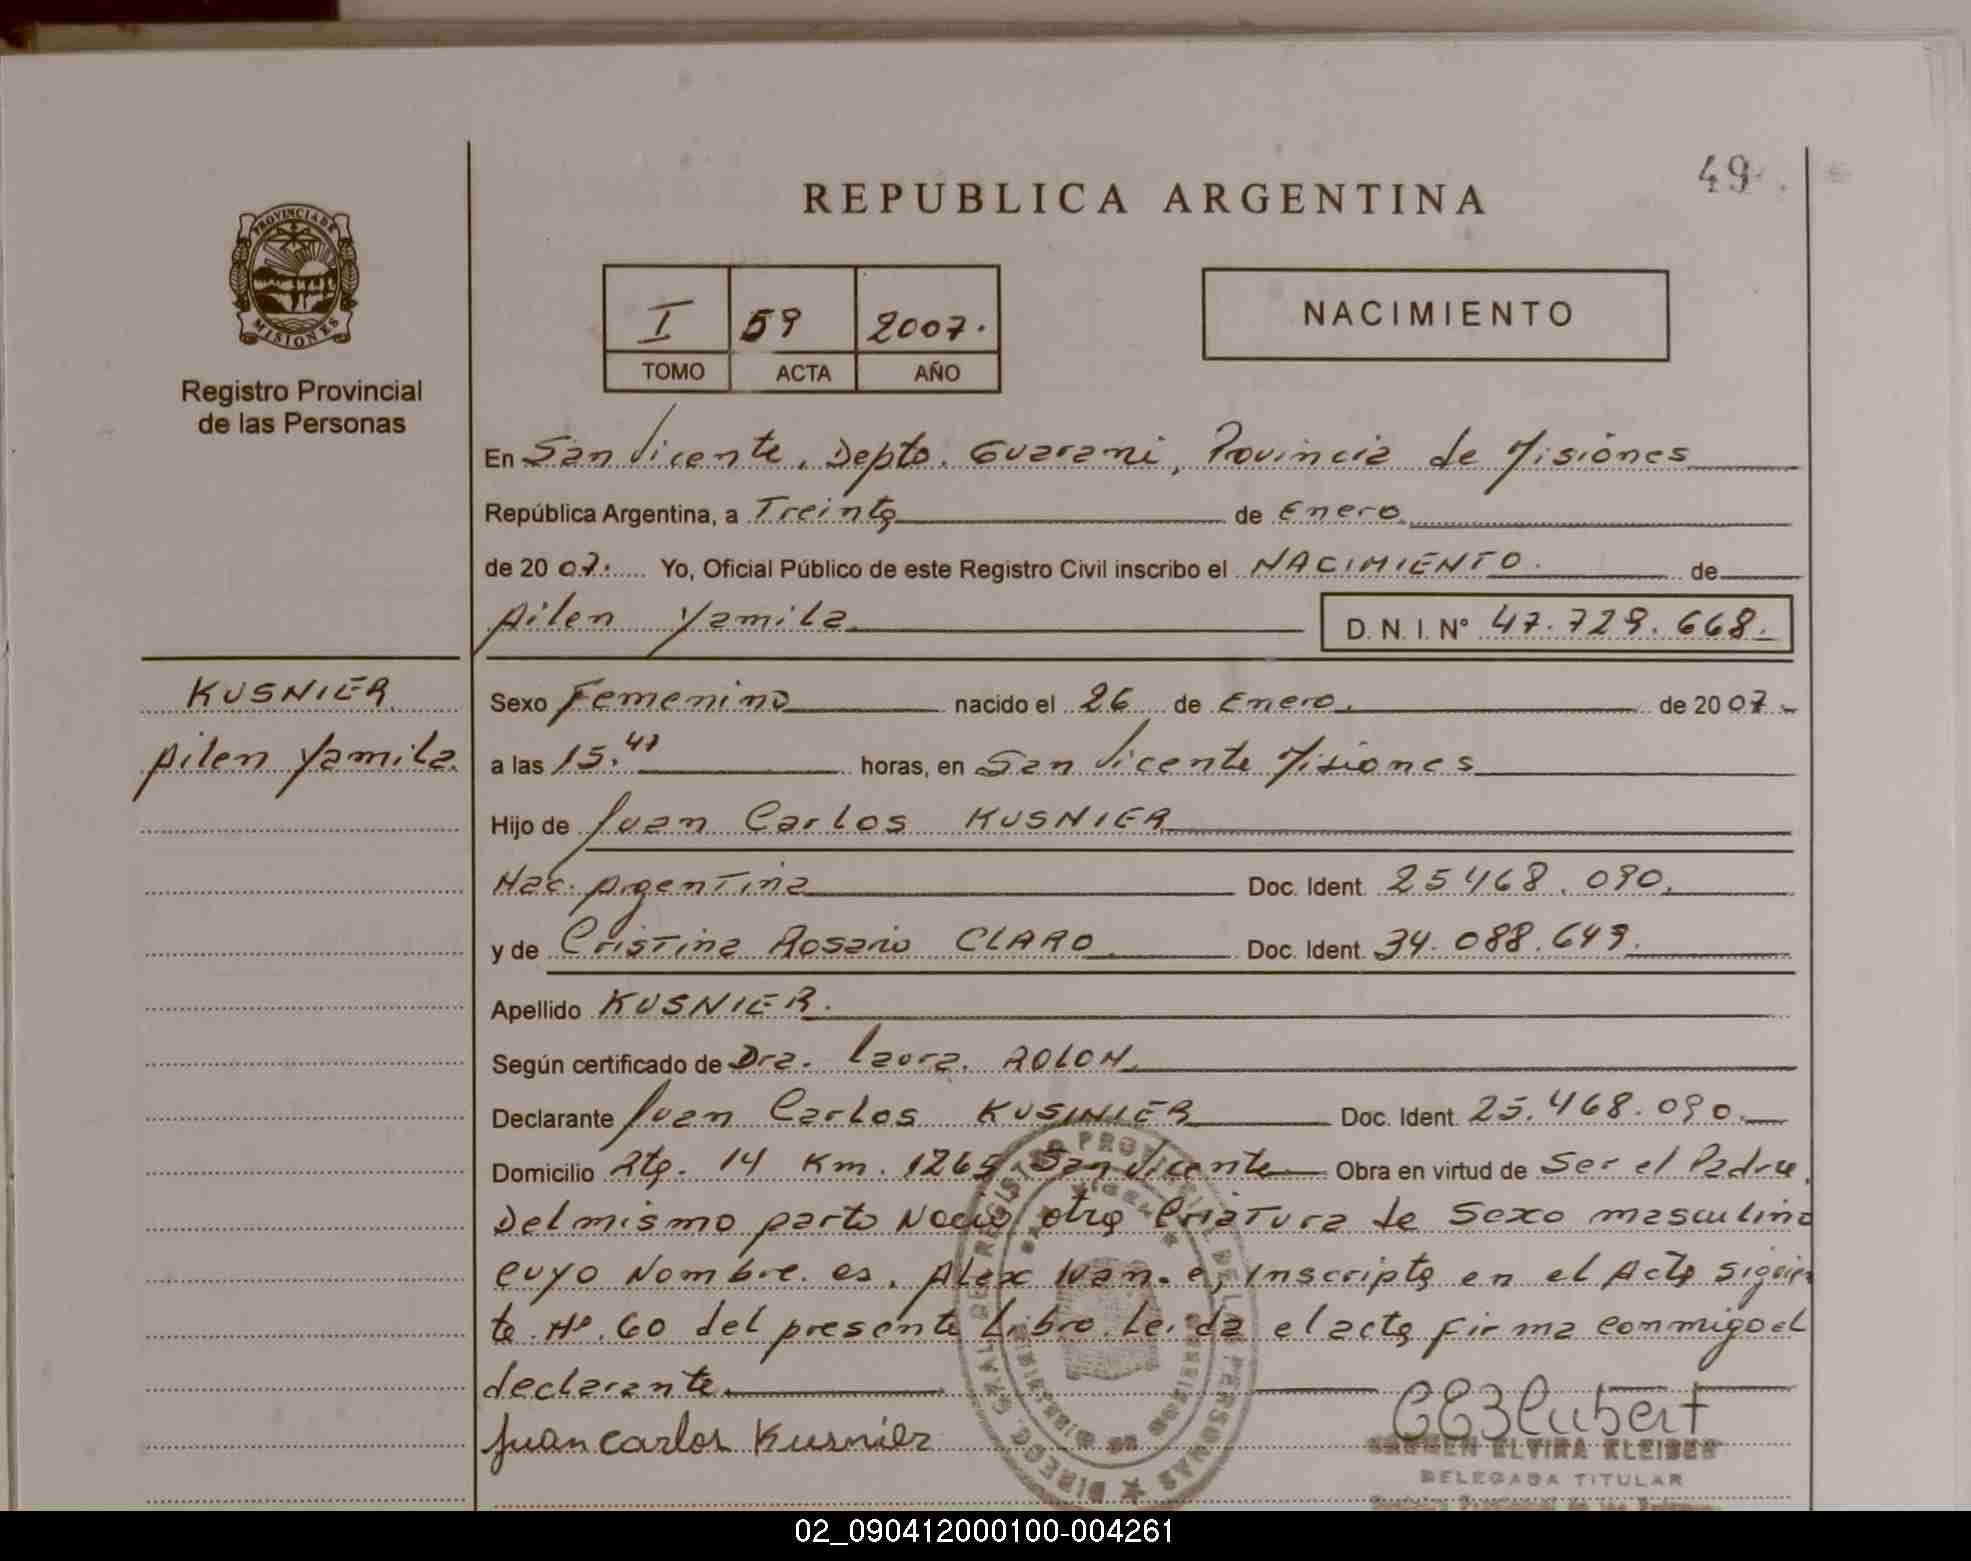 49
REPUBLICA ARGENTINA
PROVINCIA DE
MISIONES
Registro Provincial
de las Personas
I 59 2007.
TOMO ACTA AÑO
NACIMIENTO
En San Vicente, Depto. Guarani, Provincia de Misiones
República Argentina, a Treinta de Enero
de 2007. Yo, Oficial Público de este Registro Civil inscribo el NACIMIENTO. de
Ailen Yamila D. N. I. N° 47.729.668.
KUSNIER
Ailen Yamila
Sexo Femenino nacido el 26 de Enero. de 2007.
a las 15.47 horas, en San Vicente Misiones
Hijo de Juan Carlos KUSNIER
Nac. Argentina Doc. Ident. 25468.090.
y de Cristina Rosario CLARO Doc. Ident. 34.088.649.
Apellido KUSNIER.
Según certificado de Dra. Laura. ROLON.
Declarante Juan Carlos KUSINIER Doc. Ident. 25.468.090.
Domicilio Rta. 14 Km. 1265 San Vicente Obra en virtud de Ser el Padre,
Del mismo parto Nacio otra Criatura de Sexo masculino
cuyo Nombre. es, Alex Ivan. e, Inscripta en el Acta siguien
te. Nº. 60 del presente Libro. Leida el acta firma conmigo el
declarante
Juan carlos Kusnier
CARMEN ELVIRA
DELEGADA TITULAR
DIREC. GRAL. DE REGISTRO PROVINCIAL DE LAS PERSONAS
02_090412000100-004261